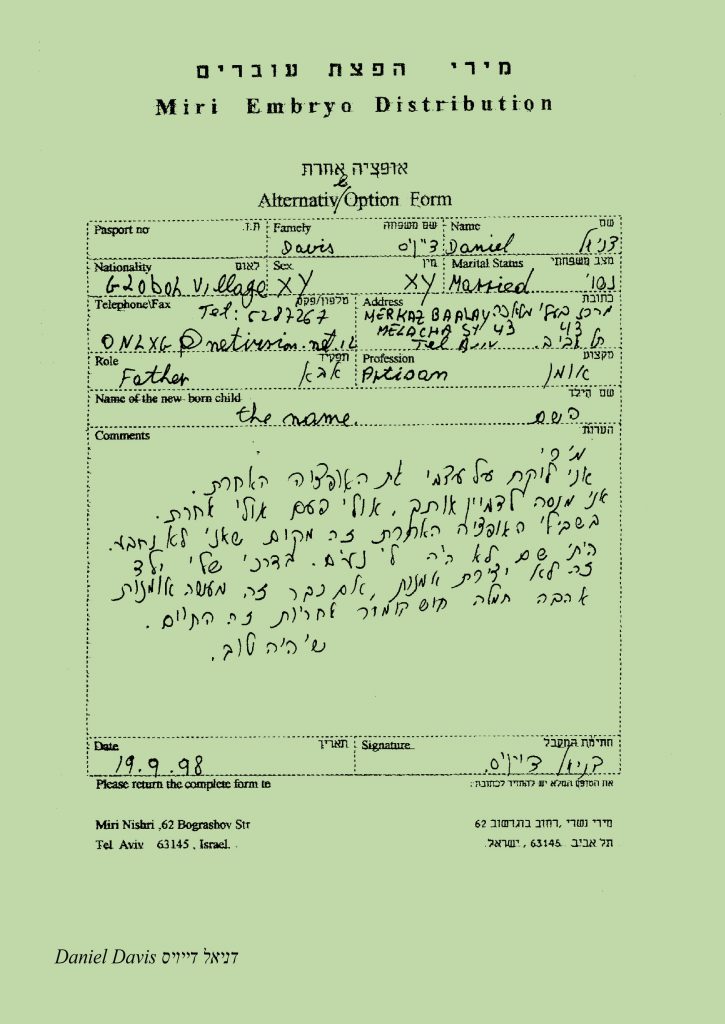 מירי הפצת עוברים
Miri Embryo Distribution
אופציה אחרת
Alternativ/e Option Form
Pasport no ת.ז. Famely שם משפחה Name שם
Davis דיויס Daniel דניאל
Nationality לאום Sex מין Marital Status מצב משפחתי
Globol Village XY XY Married נשוי
Telephone\Fax טלפון/פקס Address כתובת
Tel: 5287267 MERKAZ BAALAY מרכז בעלי מלאכה
MELACHA ST 43 43
@netvision.net.il Tel Aviv תל אביב.
Role תפקיד Profession מקצוע
Father אבא Artisan אומן
Name of the new born child שם הילד
the name. השם
Comments הערות
מירי
אני לוקח על עצמי את האופציה האחרת.
אני מנסה לדמיין אותה. אולי פעם אולי אחרת.
בשבילי האופציה האחרת זה מקום שאני לא נחבא.
הייתי שם לא היה לי נעים. בדרכי שלי ילד
זה לא יצירת אמנות, אם כבר זה מעשה אומנות
אהבה חמלה חוש הומור אחריות זה החיים.
שיהיה טוב.
Date תאריך Signature חתימת המקבל
19.9.98 דניאל דיויס.
Please return the complete form to את הטופס המלא יש להחזיר לכתובת:
Miri Nishri ,62 Bograshov Str מירי נשרי, רחוב בוגרשוב 62
Tel Aviv 63145 , Israel. תל אביב 63145, ישראל.
Daniel Davis דניאל דייויס